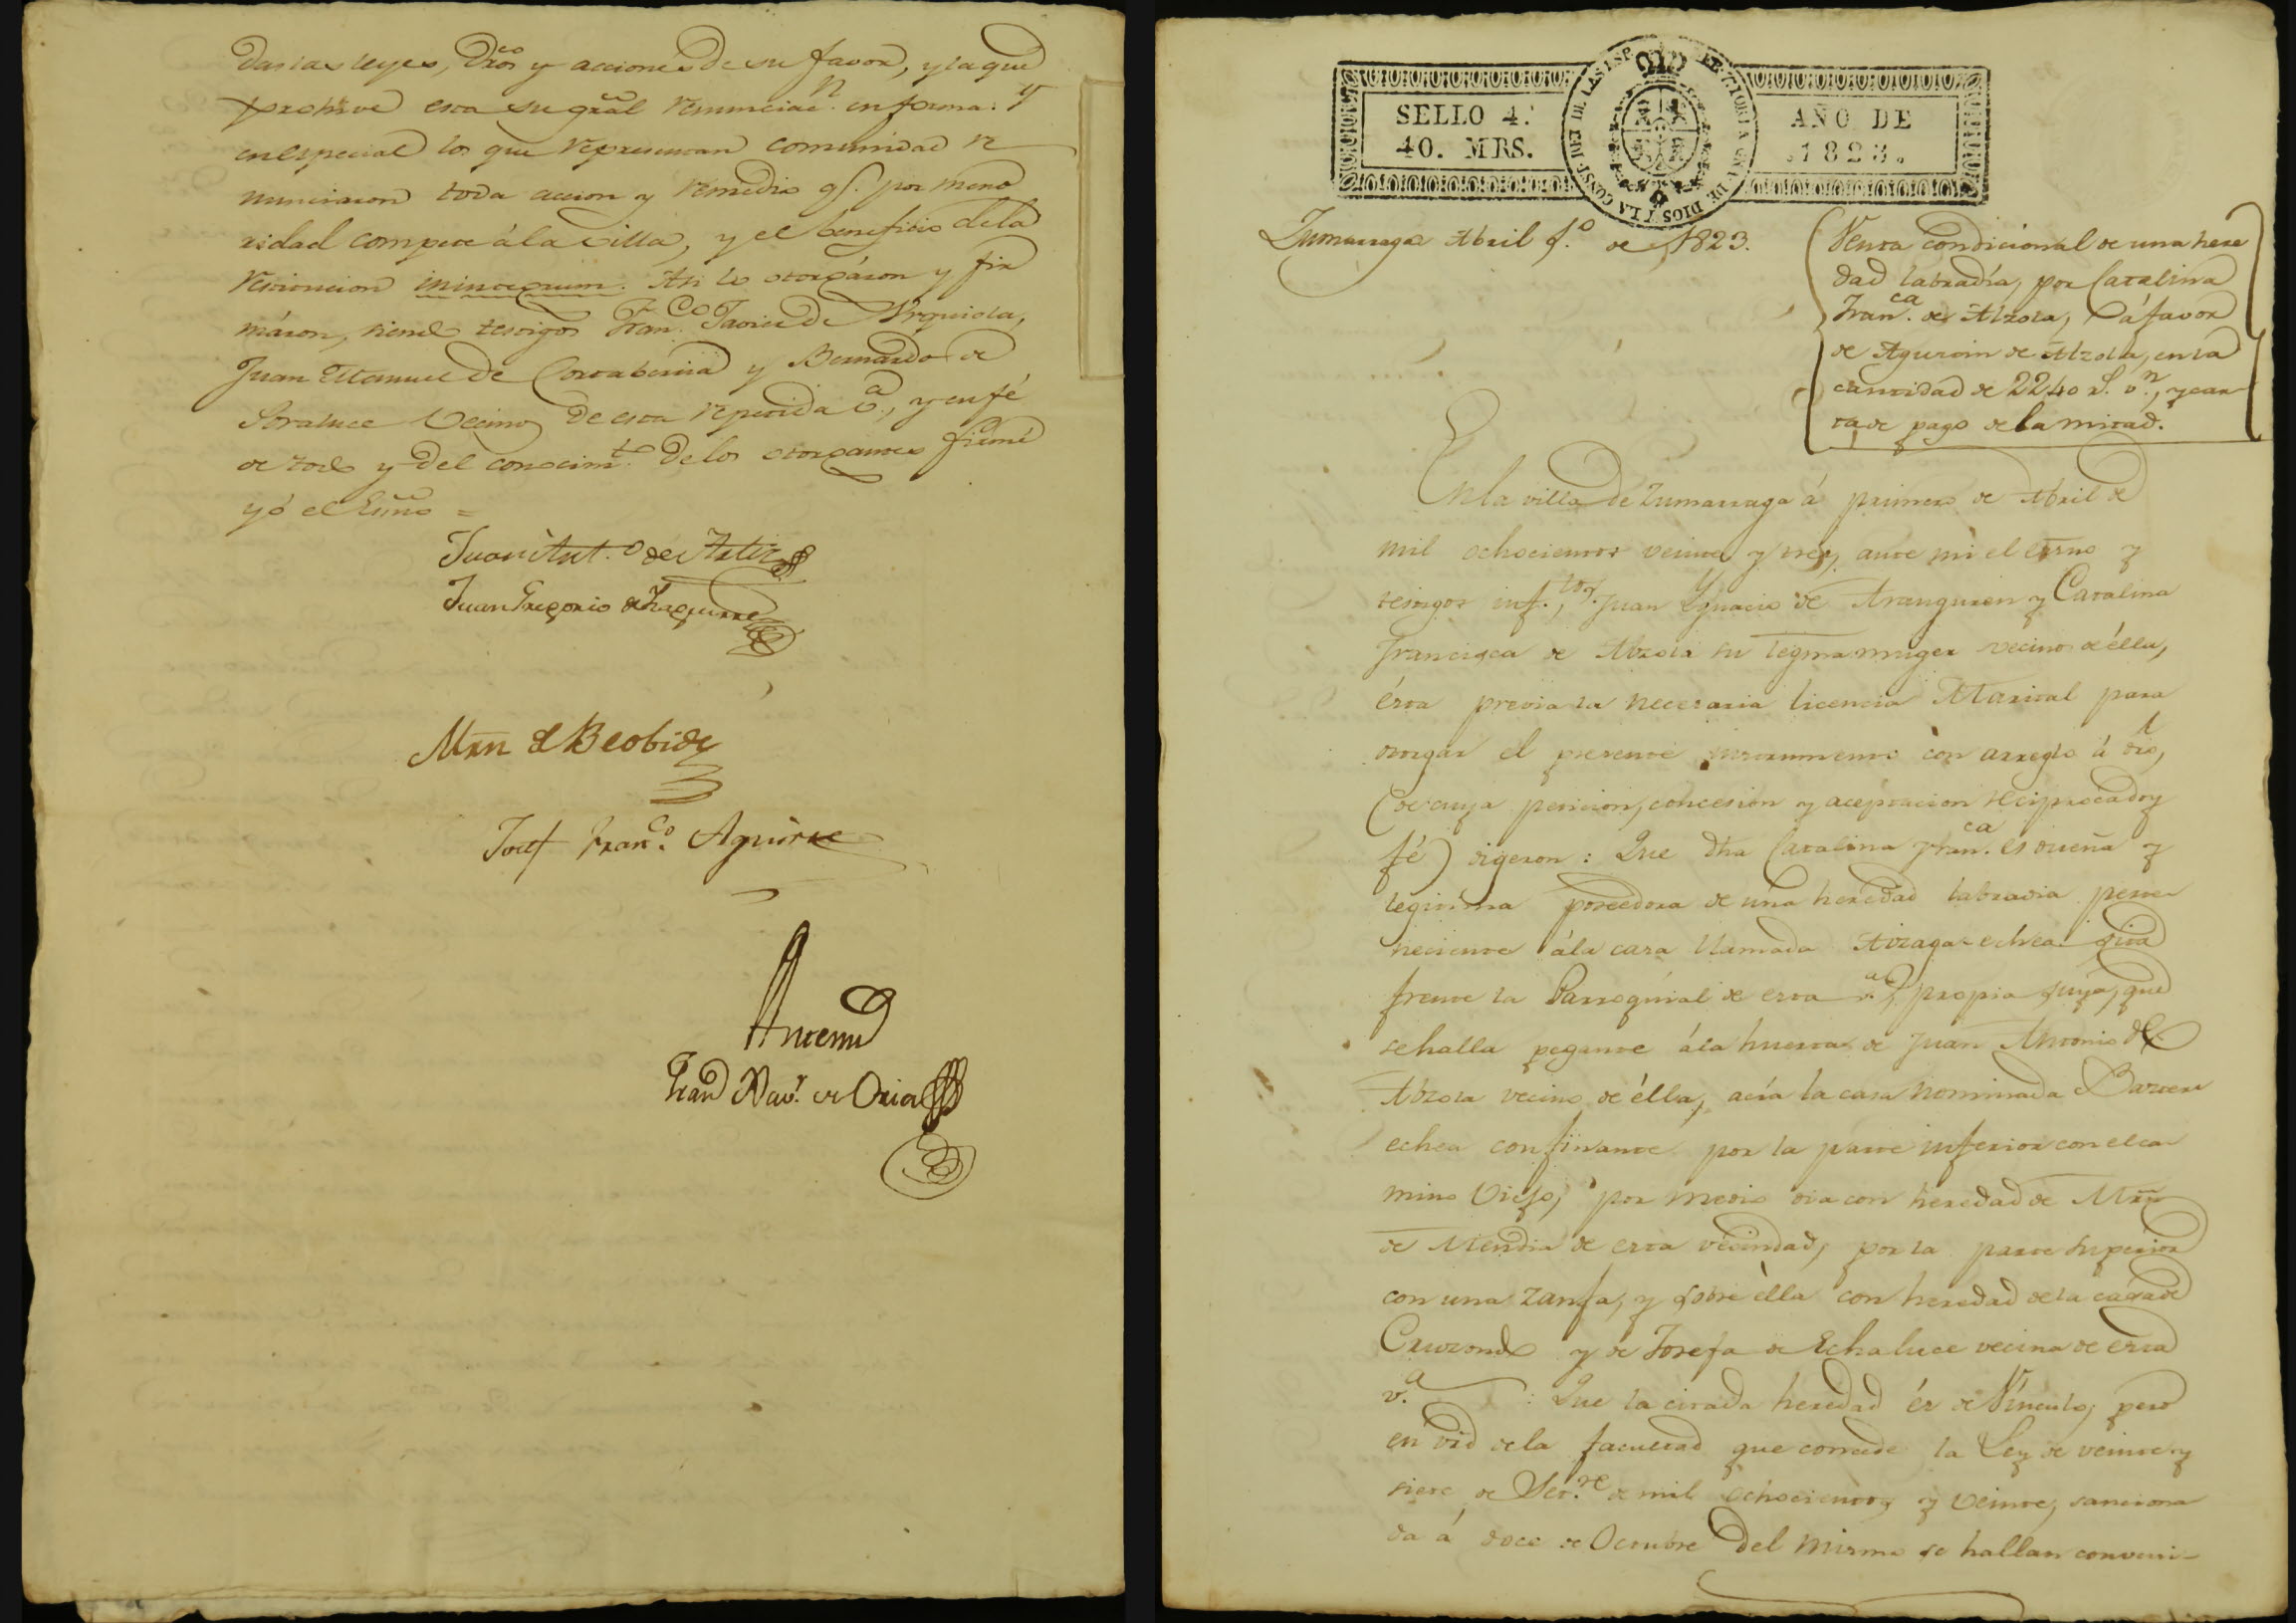 das las leyes, dros y acciones de su favor, y la que
prohive esta su gral renunciac.n en forma: Y
en especial los que representan comunidad re
nunciaron toda accion y remedio q.e por meno
ridad compete á la villa, y el beneficio de la
restitucion inintegrum. Asi lo otorgáron y fir
máron, siendo testigos Fran.co Javier de Urquiola,
Juan Manuel de Cortaberria y Bernardo de
Soraluce vecinos de esta repetida v.a, y en fé
de todo y del conocim.to de los otorgantes firmé
yó el Esno =
Juan Ant.o de Arti
Juan Gregorio de Izaguirre
Mrn de Beobide
Josef Fran.co Aguirre
Antemi
Fran Xav.r de Oria
SELLO 4.º
40. MRS.
AÑO DE
1823.
Zumarraga Abril 1.o de 1823.
Venta condicional de una here
dad labradía, por Catalina
Fran.ca de Alzola, á favor
de Agustin de Alzola, en la
cantidad de 2240 r.s v.n, y car
ta de pago de la mitad.
En la villa de Zumarraga á primero de Abril de
mil ochocientos veinte y tres, ante mi el esno y
testigos inf.tos, Juan Ygnacio de Aranguren y Catalina
Francisca de Alzola su legma muger vecinos de élla,
ésta previa la necesaria licencia Marital para
otorgar el presente instrumento con arreglo á dro,
(de cuya peticion, concesion y aceptacion reciproca doy
fé) digeron: Que dha Catalina Fran.ca es dueña y
legitima poseedora de una heredad labradia perte
neciente á la casa llamada Aizaga-echea sita
frente la Parroquial de esta v.a, propia suya, que
se halla pegante á la huerta de Juan Antonio de
Alzola vecino de élla, acía la casa nominada Barren
echea confinante por la parte inferior con el ca
mino viejo, por medio dia con heredad de Mrn
de Mendia de esta vecindad, por la parte superior
con una zanja, y sobre élla con heredad de la casa de
y de Josefa de Echaluce vecina de esta
v.a : Que la citada heredad és de Vínculo, pero
en vrd de la facultad que concede la Ley de veinte y
siete de Set.re de mil ochocientos y veinte, sanciona
da á doce de Octubre del mismo se hallan conveni-